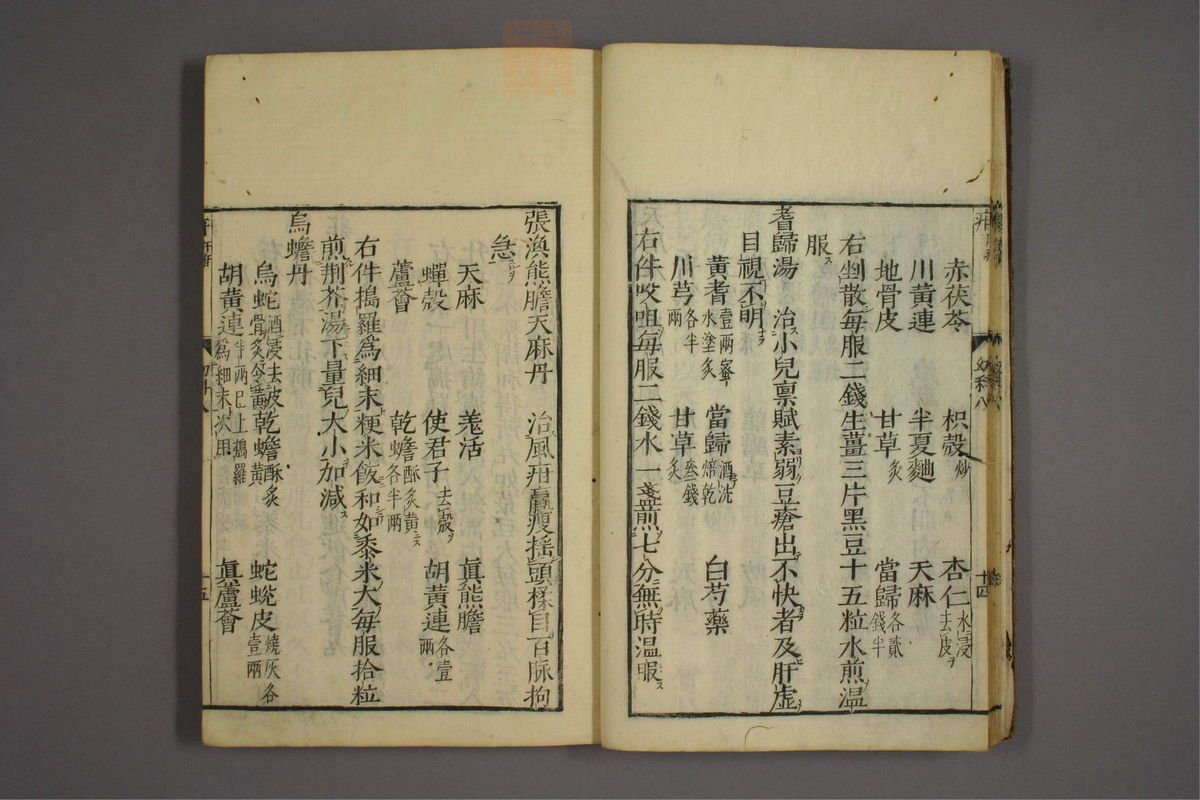 赤茯苓 枳殼炒 杏仁水浸去皮
川黃連 半夏麯 天麻
地骨皮 甘草炙 當歸各貳錢半
右剉散每服二錢生薑三片黑豆十五粒水煎溫
服
耆歸湯 治小兒禀賦素弱豆瘡出不快者及肝虛
目視不明
黃耆壹兩蜜水塗炙 當歸酒洗焙乾 白芍藥
川芎各半兩 甘草炙叁錢
右件㕮咀每服二錢水一盞煎七分無時温服
幼科八 十四
張渙熊膽天麻丹 治風疳羸瘦揺頭揉目百脉拘
急
天麻 羗活 眞熊膽
蟬殼 使君子去殼 胡黃連各壹兩
蘆薈 乾蟾酥炙黃各半兩
右件搗羅爲細末粳米飯和如黍米大每服拾粒
煎荆芥湯下量兒大小加減
烏蟾丹
烏蛇酒浸去皮骨炙令黃 乾蟾酥炙黃 蛇蛻皮燒灰各壹兩
胡黃連半兩已上搗羅爲細末次用 眞蘆薈
十五